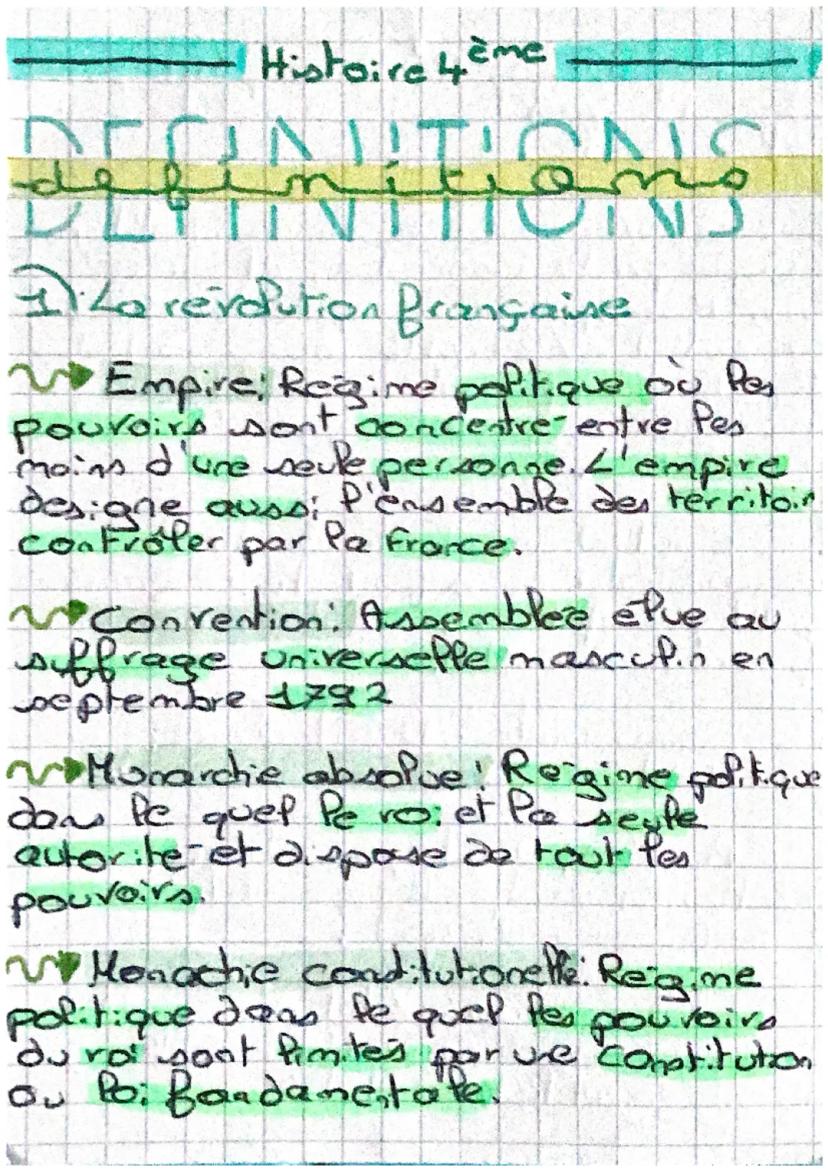 Histoire 4ème
DEFINITIONS
definitions
1) La révolution française
Empire: Régime politique où les
pouvoirs sont concentré entre les
mains d'une seule personne. L'empire
designe aussi l'ensemble des territoir
contrôler par la France.
Convention: Assemblée élue au
suffrage universelle masculin en
septembre 1792
Monarchie absolue: Régime politique
dans le quel le roi et la seule
autorité et dispose de tout les
pouvoirs.
Monachie constitutionelle: Régime
politique dans le quel les pouvoirs
du roi sont limités par une constitution
ou loi fondamentale.